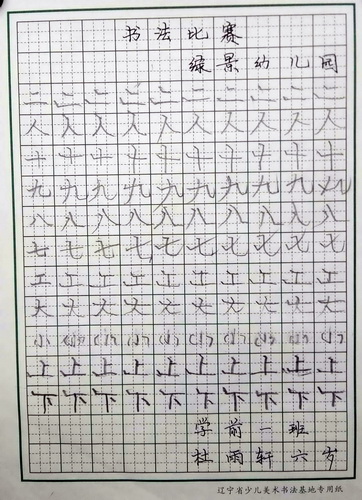 书法比赛
绿景幼儿园
二二二二二二二二二二
入入入入入入入入入入
十十十十十十十十十十
九九九九九九九九九九
八八八八八八八八八八
七七七七七七七七七七
工工工工工工工工工工
大大大大大大大大大大
小小小小小小小小小小
上上上上上上上上上上
下下下下下下下下下下
学前一班
杜雨轩六岁
辽宁省少儿美术书法基地专用纸